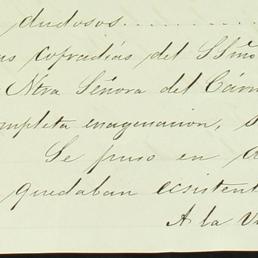 dudosos...........
as cofradías del SSmo
Ntra Señora del Cárm
mpleta enagenacion, s
Se puso en c
quedaban ecsistent
A la V